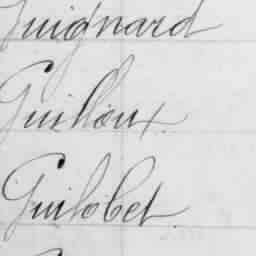 Guignard
Guilloux.
Guilobel.